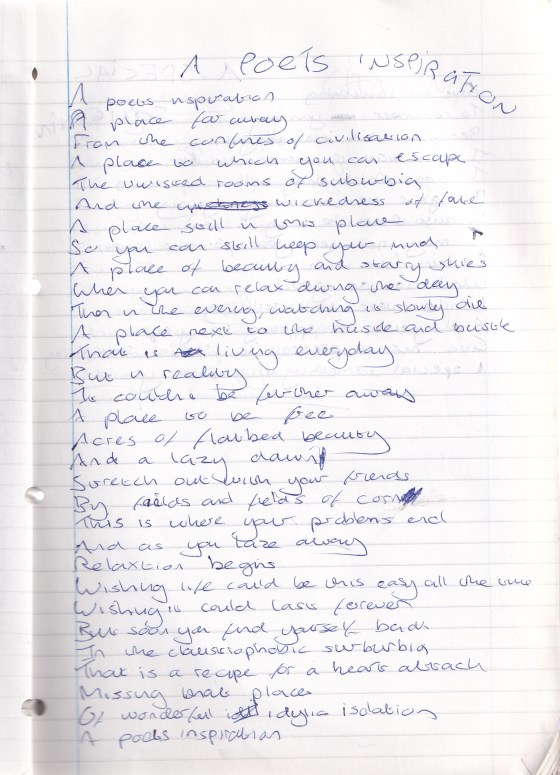 A POETS INSPIRATION
A poets inspiration
A place far away
From the confines of civilisation
A place to which you can escape
The twisted rooms of suburbia
And the wickedness of fate
A place still in this place
So you can still keep your mind
A place of beauty and starry skies
When you can relax during the day
Then in the evening, watching it slowly die
A place next to the hustle and bustle
That is living everyday
But in reality
It couldn't be further away
A place to be free
Acres of beauty
And a lazy dawn
Stretch out with your friends
By fields and fields of corn
This is where your problems end
And as you laze away
Relaxtion begins
Wishing life could be this easy all the time
Wishing it could last forever
But soon you find yourself back
In the claustrophobic surburbia
That is a recipe for a heart attack
Missing that place
Of wonderful idylic isolation
A poets inspiration